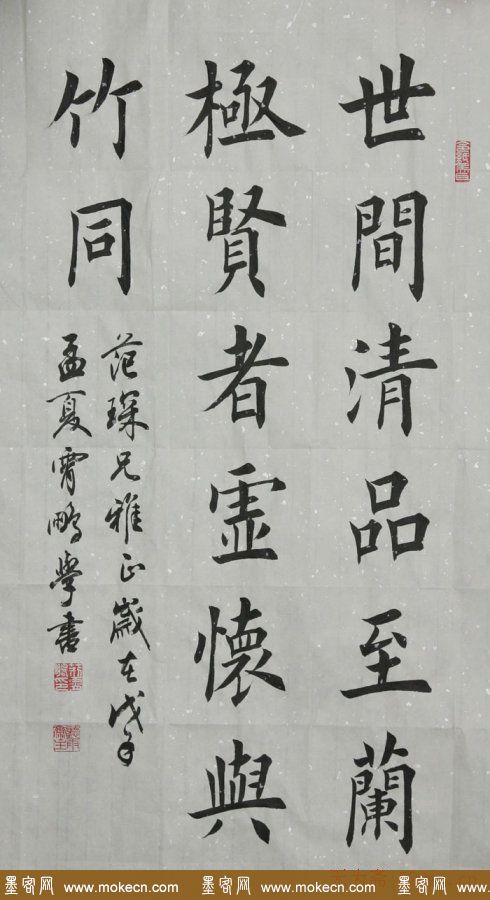 世間清品至蘭
極賢者虛懷與
竹同
范琛兄雅正歲在戊子
孟夏霄鵬學書
墨客网 www.mokecn.com 墨客网 www.mokecn.com 墨客网 www.mokecn.com